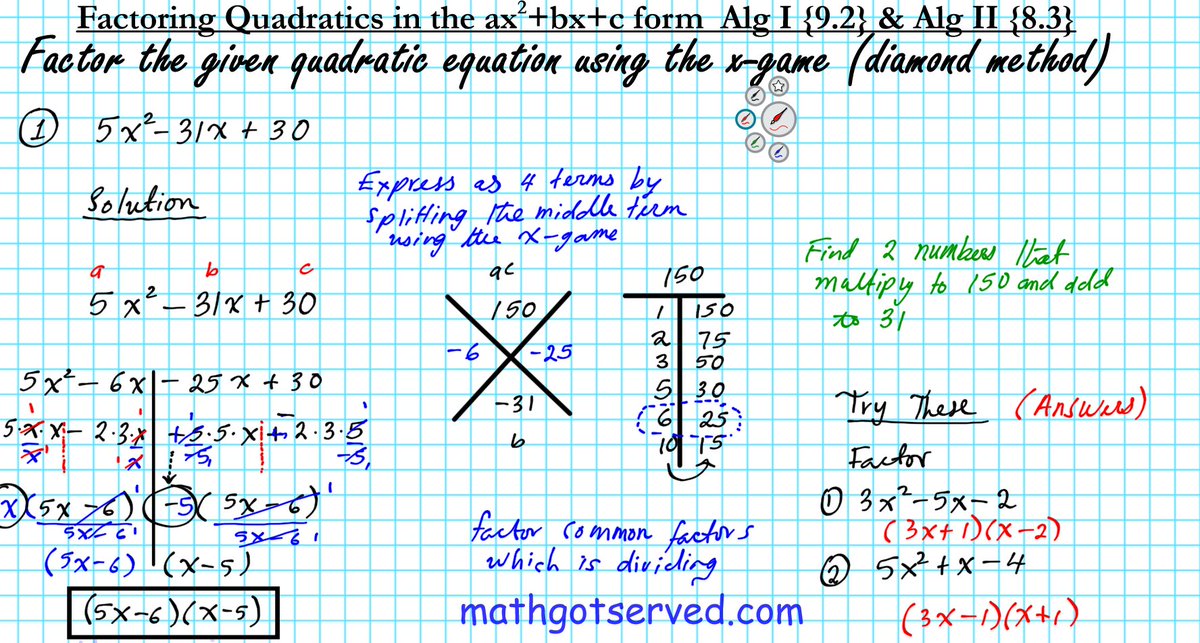 Factoring Quadratics in the ax²+bx+c form Alg I {9.2} & Alg II {8.3}
Factor the given quadratic equation using the x-game (diamond method)
① 5x²-31x + 30
Solution
Express as 4 terms by
splitting the middle term
using the x-game
a b c
5x² - 31x + 30
5x² - 6x - 25x + 30
5·x·x - 2·3·x + 5·5·x + 2·3·5
x x -5, -5,
x(5x-6) -5(5x-6)
5x-6 5x-6
(5x-6) (x-5)
(5x-6)(x-5)
ac
150
-6 -25
-31
b
150
1 150
2 75
3 50
5 30
6 25
10 15
factor common factors
which is dividing
mathgotserved.com
Find 2 numbers that
multiply to 150 and add
to 31
Try These (Answers)
Factor
① 3x²-5x-2
(3x+1)(x-2)
② 5x²+x-4
(3x-1)(x+1)